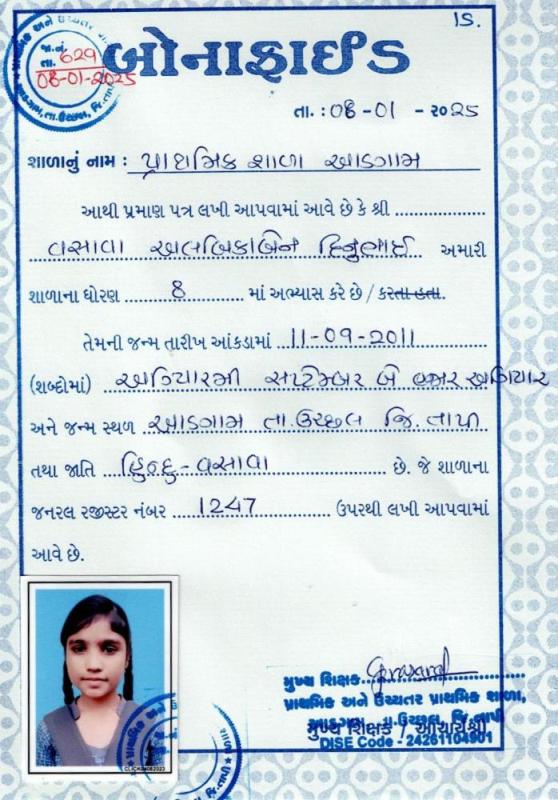 ID.
જા.નં. 629
તા. 08-01-2025
બોનાફાઈડ
તા. : 08-01 - ૨૦25
શાળાનું નામ : પ્રાથમિક શાળા આડગામ
આથી પ્રમાણ પત્ર લખી આપવામાં આવે છે કે શ્રી ....................
વસાવા અલબિકાબેન દિનુભાઈ અમારી
શાળાના ધોરણ ............ 8 ............ માં અભ્યાસ કરે છે / કરતા હતા.
તેમની જન્મ તારીખ આંકડામાં ..11-09-2011..........
(શબ્દોમાં) અગિયારમી સપ્ટેમ્બર બે હજાર અગિયાર
અને જન્મ સ્થળ ..આડગામ તા.ઉચ્છલ જિ.તાપી
તથા જાતિ ..હિન્દુ-વસાવા .................. છે. જે શાળાના
જનરલ રજીસ્ટર નંબર .....1247................. ઉપરથી લખી આપવામાં
આવે છે.
મુખ્ય શિક્ષક
પ્રાથમિક અને ઉચ્ચતર પ્રાથમિક શાળા,
આડગામ તા.ઉચ્છલ, જિ.તાપી
મુખ્ય શિક્ષક / આચાર્યશ્રી
DISE Code - 24261104901